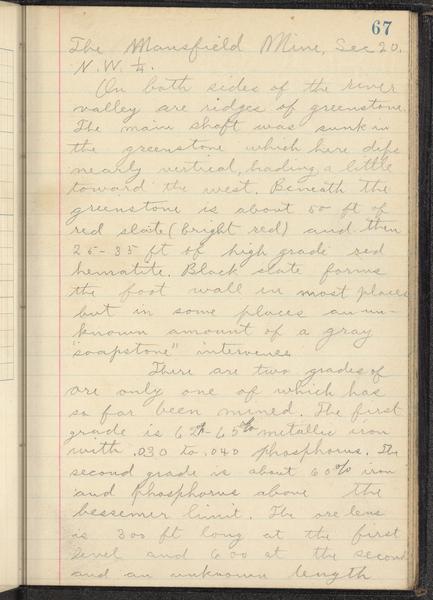 67
The Mansfield Mine, Sec 20.
N.W. ¼.
On both sides of the river
valley are ridges of greenstone.
The main shaft was sunk in
the greenstone which here dips
nearly vertical, hading a little
toward the west. Beneath the
greenstone is about 50 ft of
red slate (bright red) and then
25-35 ft of high grade red
hematite. Black slate forms
the foot wall in most places
but in some places an un-
known amount of a gray
"soapstone" intervenes
There are two grades of
ore only one of which has
so far been mined. The first
grade is 62%-65% metallic iron
with .030 to .040 phosphorus. The
second grade is about 60% iron
and phosphorus above the
bessemer limit. The ore lens
is 300 ft long at the first
level and 600 at the second
and an unknown length